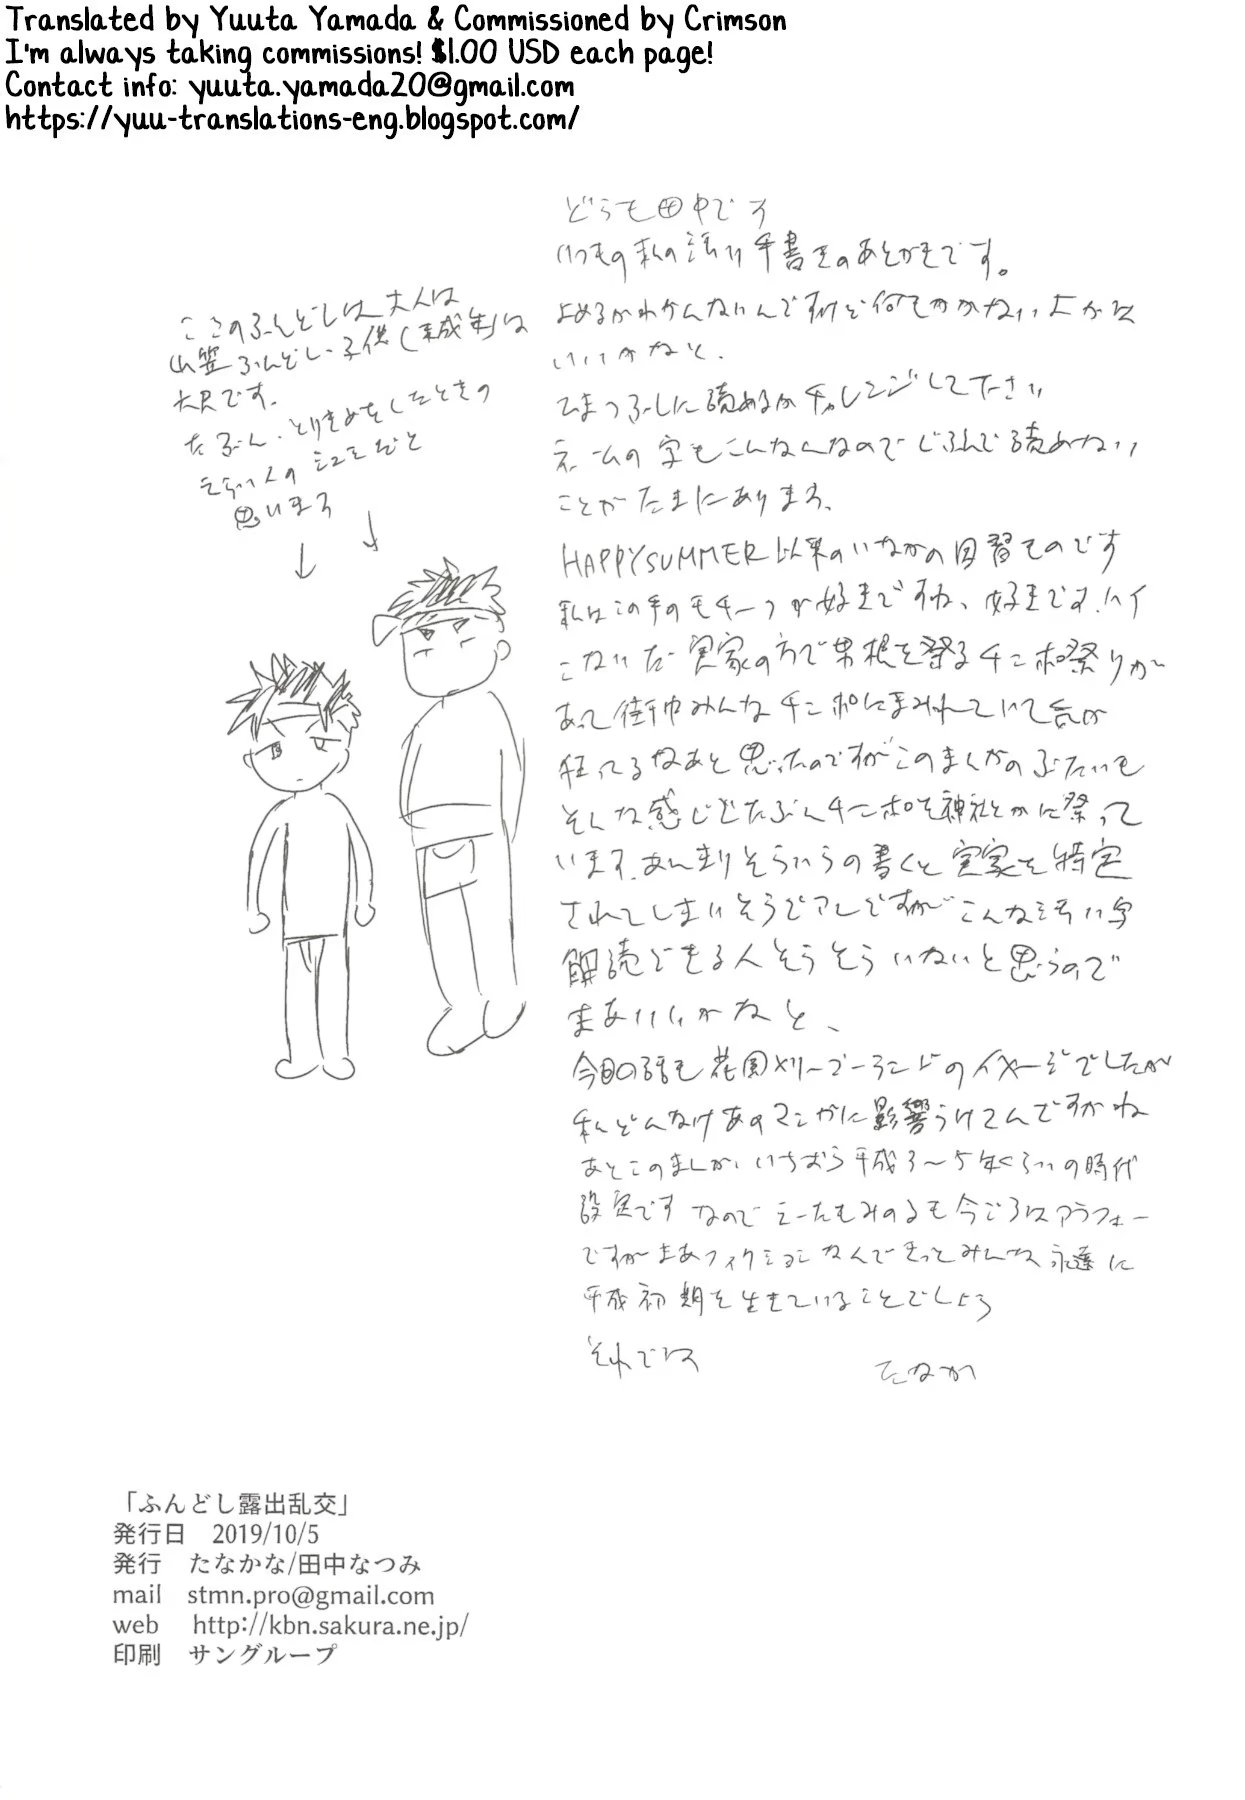 Translated by Yuuta Yamada & Commissioned by Crimson
I'm always taking commissions! $1.00 USD each page!
Contact info: yuuta.yamada20@gmail.com
https://yuu-translations-eng.blogspot.com/
どうも田中です
いつもの私の汚い手書きのあとがきです。
よめるかわかんないんですけど何もかかないよかは
いいかなと、
ひまつぶしに読めるかチャレンジして下さい
ネームの字もこんなんなのでじぶんで読めない
ことがたまにあります、
HAPPYSUMMER以来のいなかの因習ものです
私はこの手のモチーフが好きですね、好きです、ハイ
こないだ実家の方で男根を祭るチンポ祭りが
あって街中みんなチンポにまみれていて
狂ってるなあと思ったのですがこのまんがのぶたいも
そんな感じでたぶんチンポを神社とかに祭って
います、あんまりそういうの書くと実家を特定
されてしまいそうでアレですがこんな汚い字
解読できる人そうそういないと思うので
まあいいかなと、
今回の話も花園メリーゴーランドのイメージでしたが
私どんなけあのマンガに影響うけてんですかね
あとこのまんが、いちおう平成3〜5年くらいの時代
設定です なので みのるも今ごろはアラフォー
ですがまあフィクションなんできっとみんな永遠に
平成初期を生きていることでしょう
それでは
たなか
ここのふんどしは大人は
山笠ふんどし、子供(未成年)は
六尺です、
たぶん、とりきめをしたときの
えらい人の 思います
「ふんどし露出乱交」
発行日 2019/10/5
発行 たなかな/田中なつみ
mail stmn.pro@gmail.com
web http://kbn.sakura.ne.jp/
印刷 サングループ